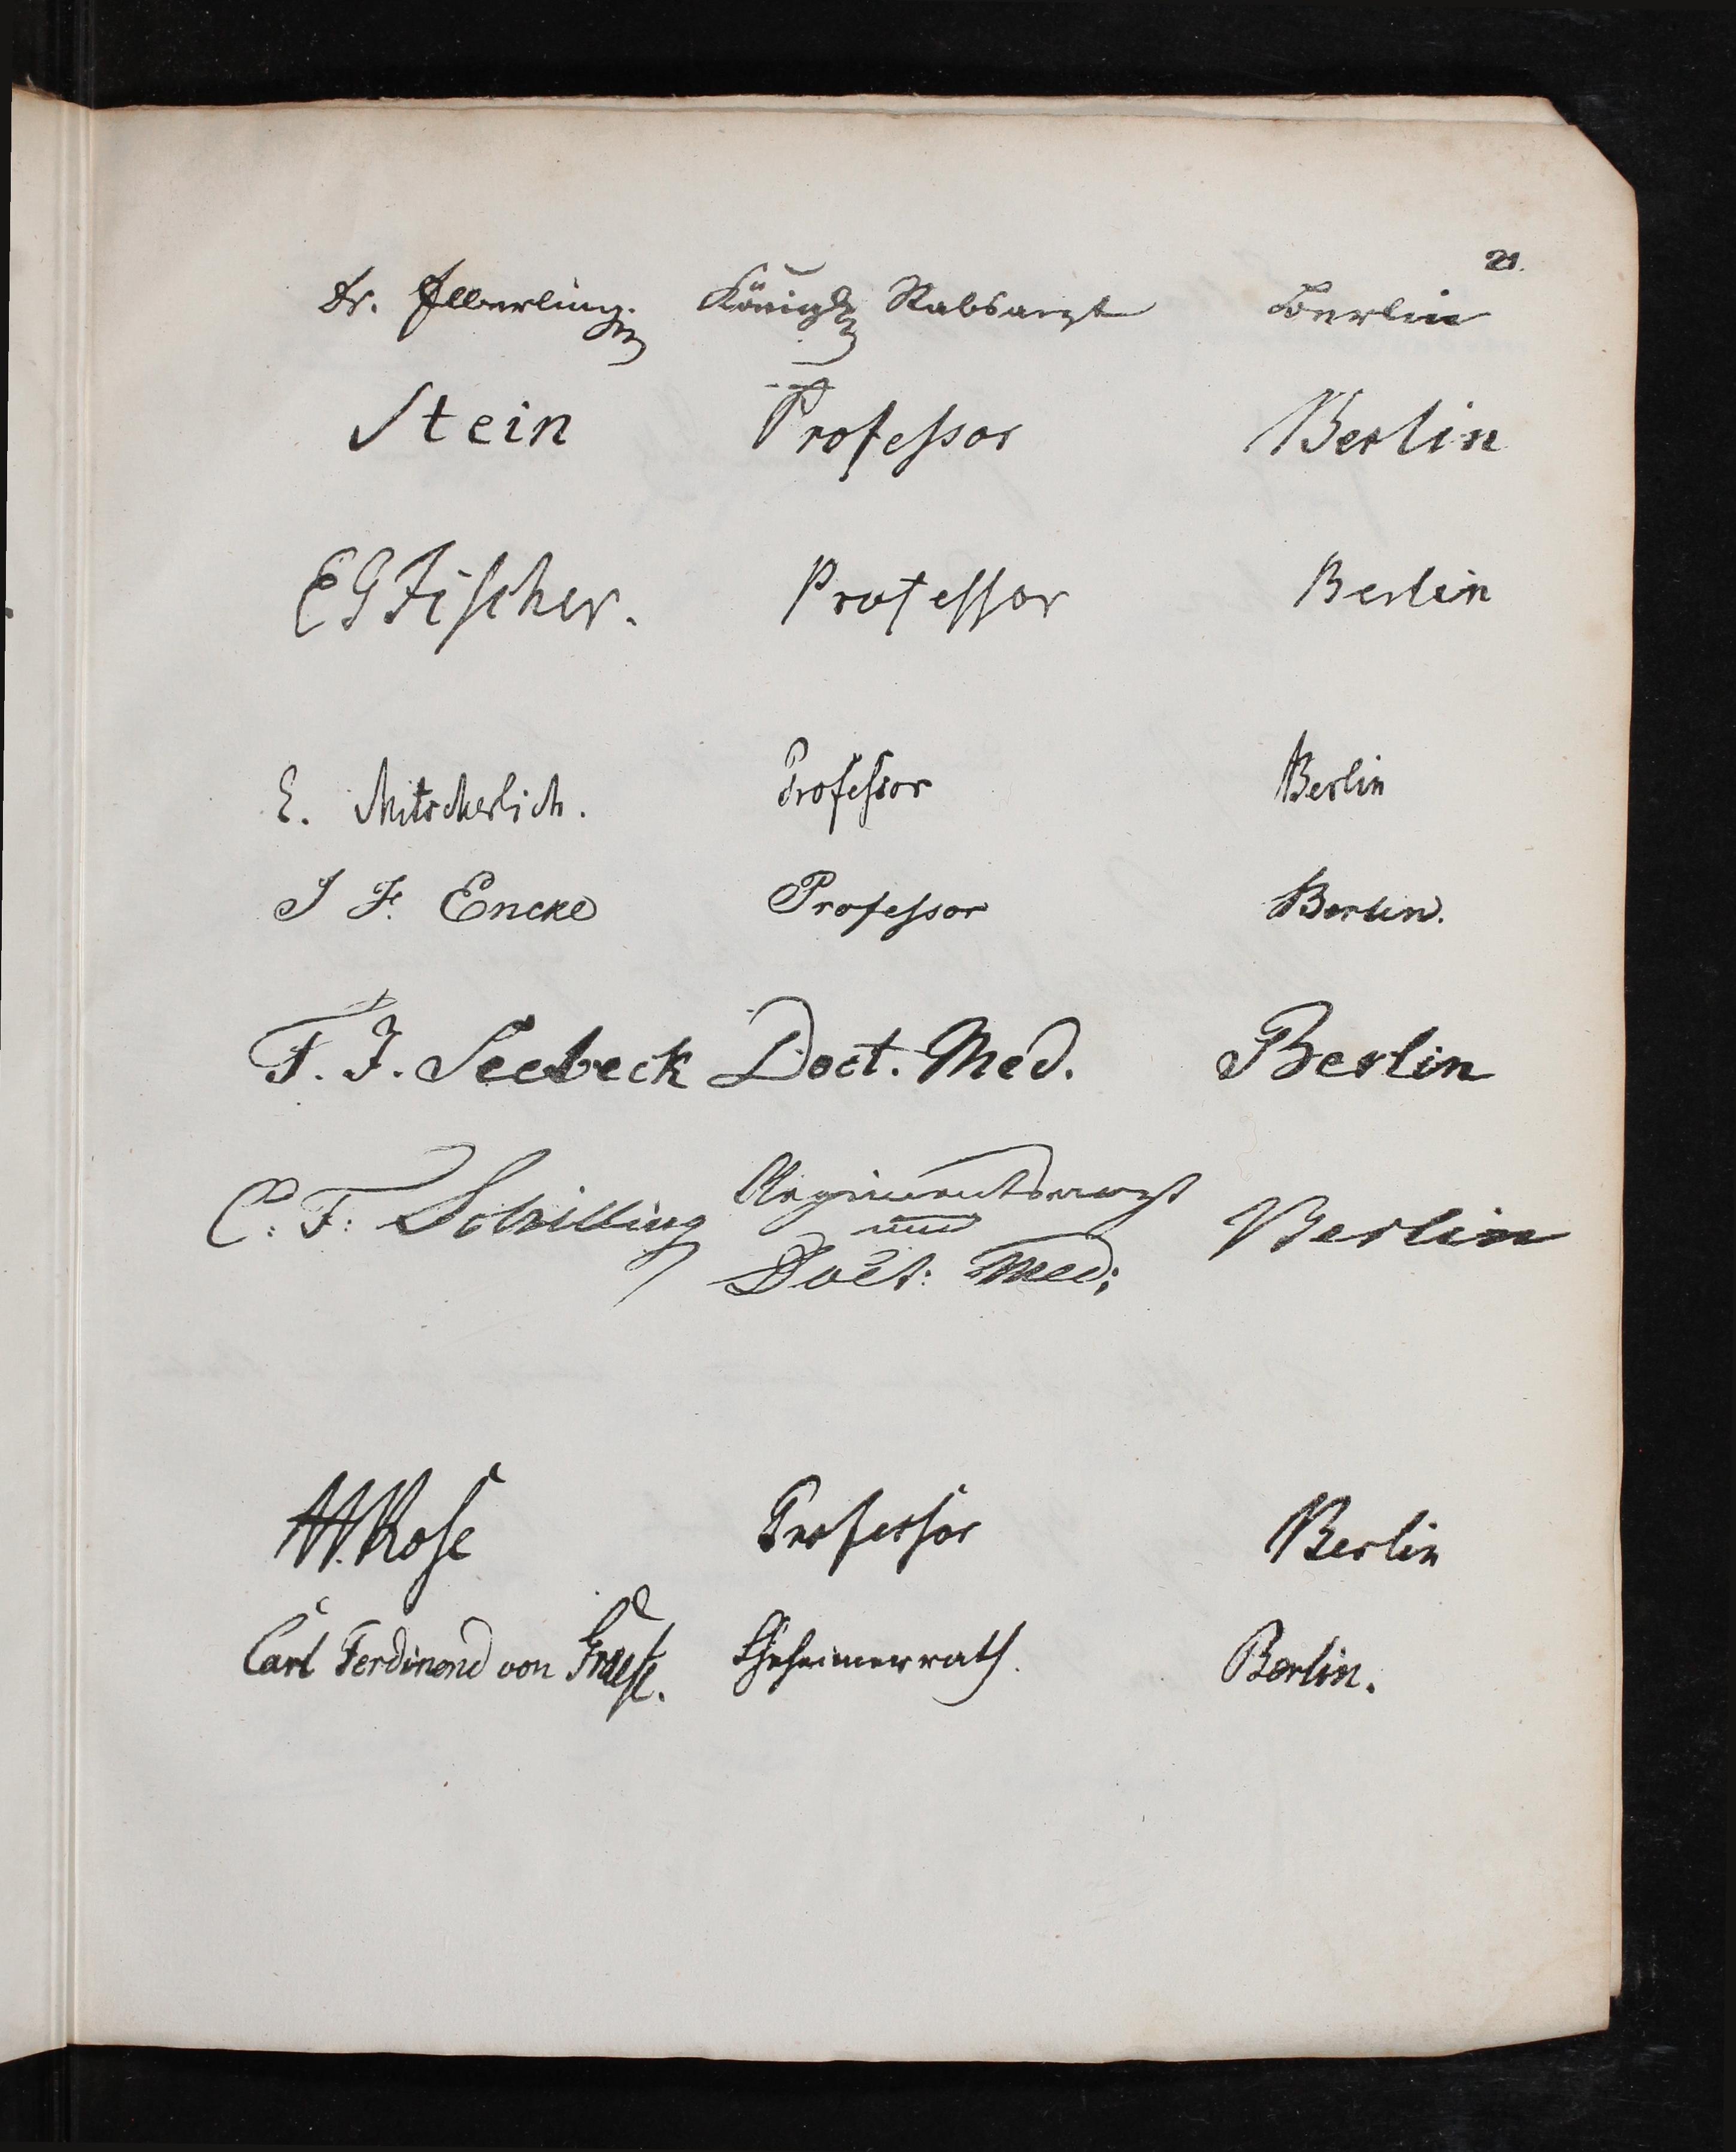 21.
Dr. Ilberling. Königl. Stabsarzt Berlin
Stein Professor Berlin
E G Fischer. Professor Berlin
E. Mitscherlich. Professor Berlin
J F. Encke Professor Berlin.
T. J. Seebeck Doct. Med. Berlin
C: F: Schilling Regimentsarzt Berlin
und
Doct: Med:
H. Rose Professor Berlin
Carl Ferdinand von Graefe. Geheimerrath. Berlin.